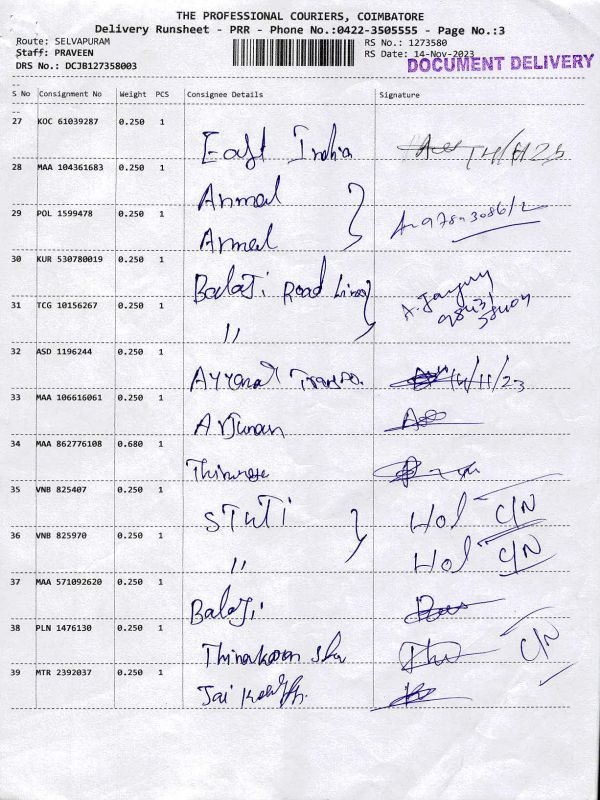 THE PROFESSIONAL COURIERS, COIMBATORE
Delivery Runsheet - PRR - Phone No.:0422-3505555 - Page No.:3
Route: SELVAPURAM RS No.: 1273580
Staff: PRAVEEN RS Date: 14-Nov-2023
DRS No.: DCJB127358003 DOCUMENT DELIVERY
S No Consignment No Weight PCS Consignee Details Signature
27 KOC 61039287 0.250 1
East India 14/11/23
28 MAA 104361683 0.250 1
Anmal
29 POL 1599478 0.250 1
Anmal
30 KUR 530780019 0.250 1
Balaji Road Lines
31 TCG 10156267 0.250 1
"
32 ASD 1196244 0.250 1
14/11/23
33 MAA 106616061 0.250 1
Arjunan
34 MAA 862776108 0.680 1
35 VNB 825407 0.250 1
STUTI Hol C/N
36 VNB 825970 0.250 1
" Hol C/N
37 MAA 571092620 0.250 1
Balaji
38 PLN 1476130 0.250 1
C/N
39 MTR 2392037 0.250 1
Jai